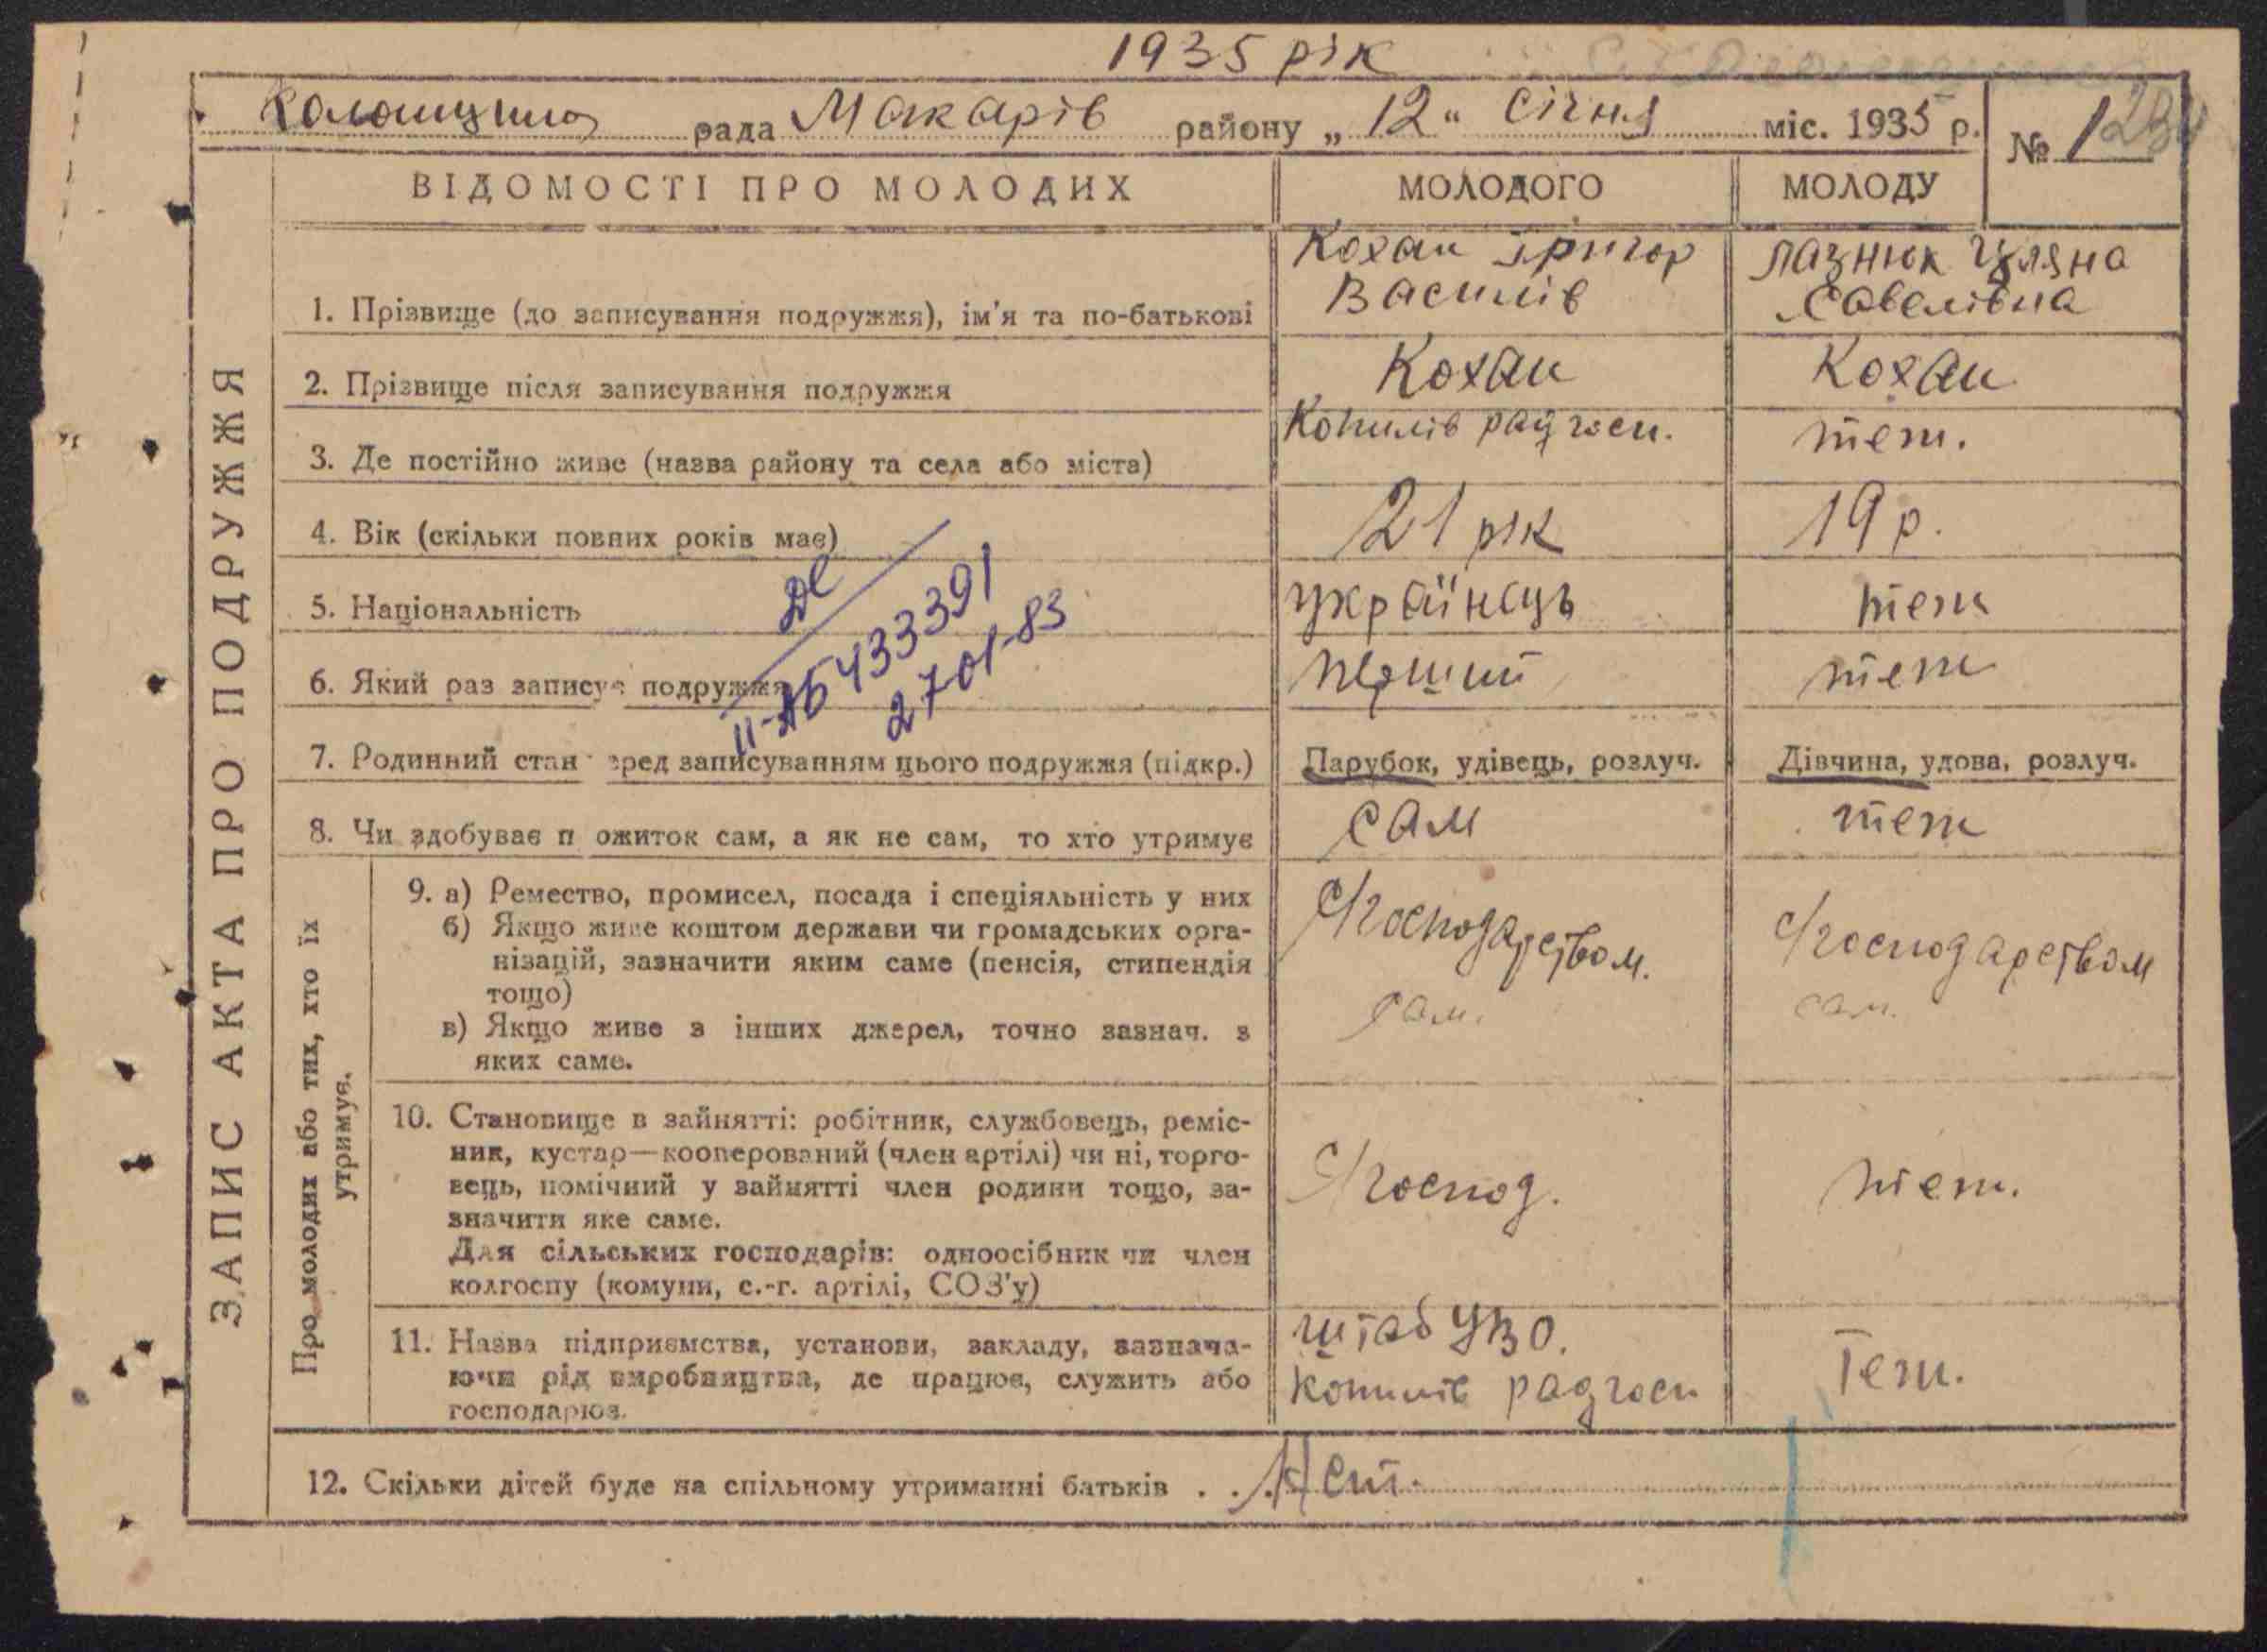 1935 рік
Колонщина рада Макарів району „ 12 “ Січня міс. 1935 р.
№ 1
ВІДОМОСТІ ПРО МОЛОДИХ МОЛОДОГО МОЛОДУ
ЗАПИС АКТА ПРО ПОДРУЖЖЯ
Кохан Григор Лазнюк Уляна
1. Прізвище (до записування подружжя), ім'я та по-батькові Василів Савелівна
2. Прізвище після записування подружжя Кохан Кохан
3. Де постійно живе (назва району та села або міста) Копилів радгосп. теж.
4. Вік (скільки повних років має) 21 рік 19 р.
5. Національність українець теж
6. Який раз записує подружжя перший теж
II-АБ 433391
27-01-83
7. Родинний стан перед записуванням цього подружжя (підкр.) Парубок, удівець, розлуч. Дівчина, удова, розлуч.
8. Чи здобуває п ожиток сам, а як не сам, то хто утримує сам теж
Про молодих або тих, хто їх
утримує.
9. а) Ремество, промисел, посада і спеціяльність у них С/господарством. С/господарством
б) Якщо живе коштом держави чи громадських орга-
нізацій, зазначити яким саме (пенсія, стипендія
тощо)
в) Якщо живе з інших джерел, точно зазнач. з сам. сам.
яких саме.
10. Становище в зайнятті: робітник, службовець, реміс-
ник, кустар—кооперований (член артілі) чи ні, торго-
вець, помічний у зайнятті член родини тощо, за- С/господ. теж.
значити яке саме.
Для сільських господарів: одноосібник чи член
колгоспу (комуни, с.-г. артілі, СОЗ'у)
11. Назва підприємства, установи, закладу, зазнача- штаб УВО.
ючи рід виробництва, де працює, служить або Копилів радгосп Теж.
господарює.
12. Скільки дітей буде на спільному утриманні батьків . . Нет.